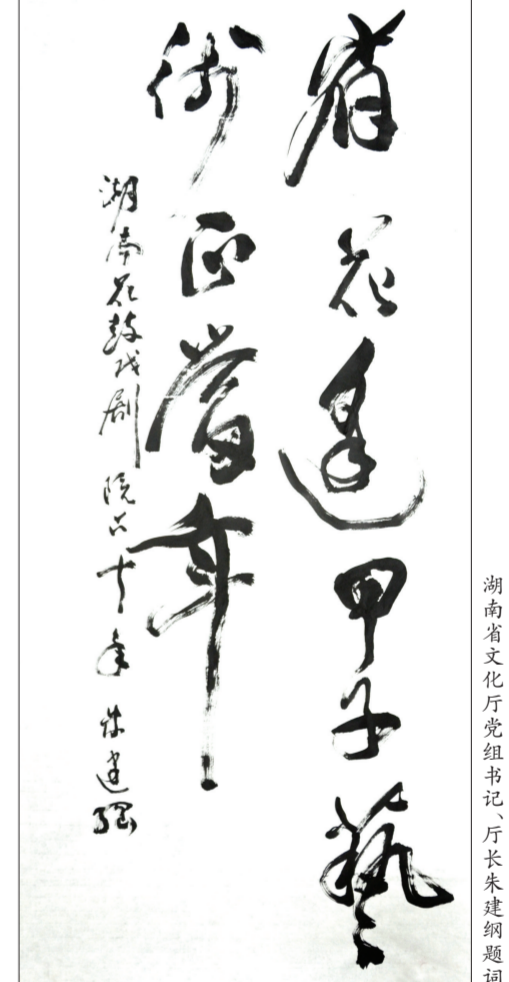 省花逢甲子藝
術正當年
湖南花鼓戏剧院六十年 朱建纲
湖南省文化厅党组书记、厅长朱建纲题词